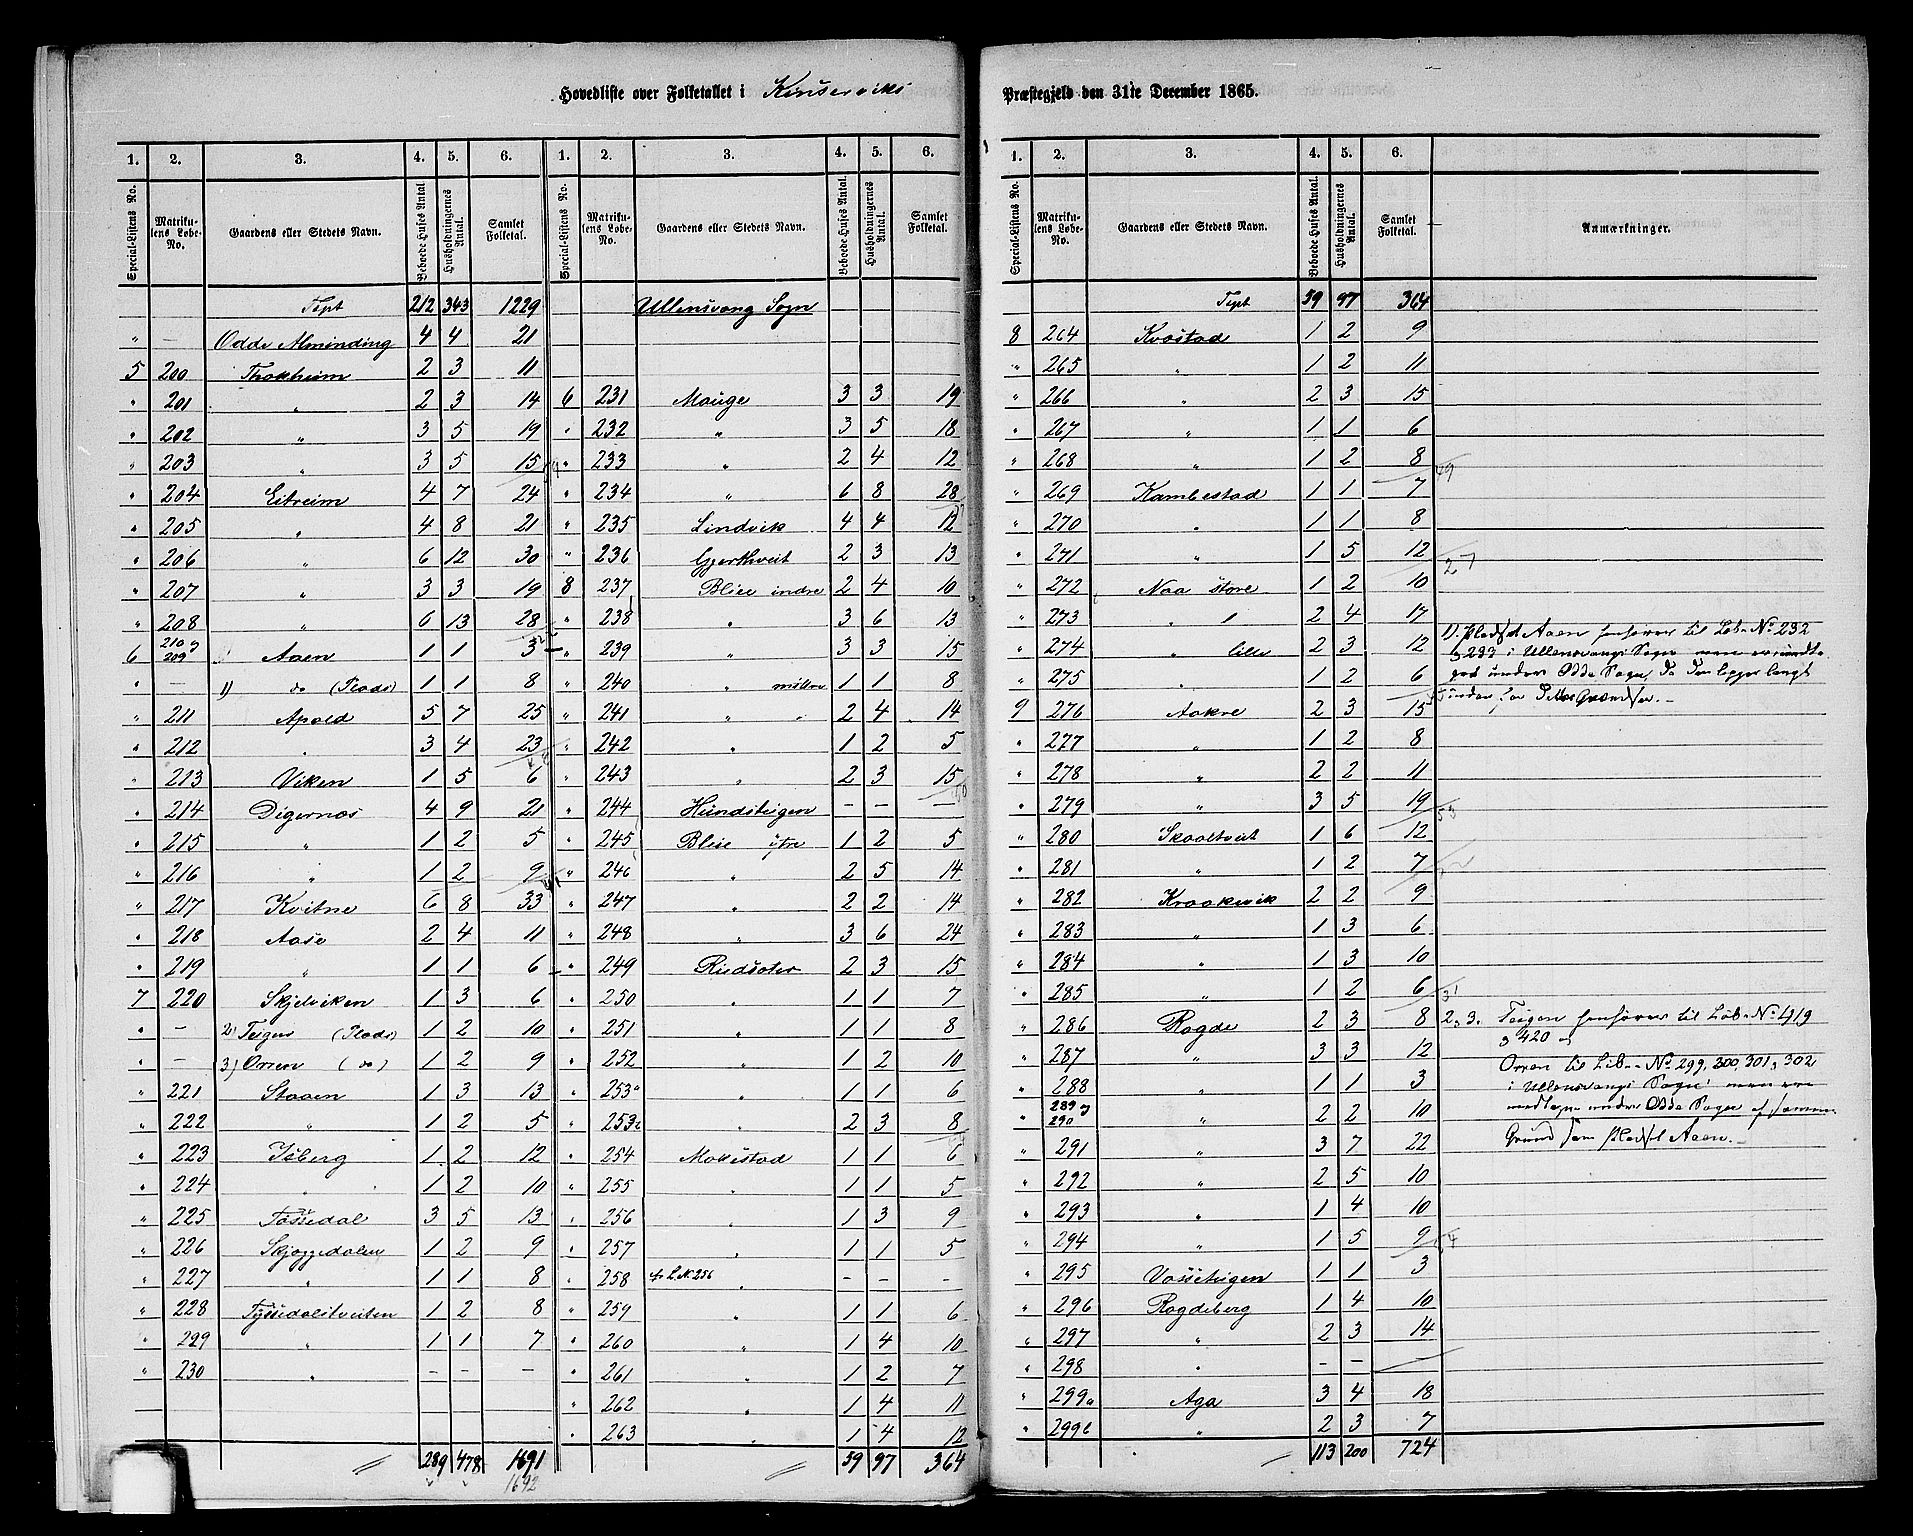 Hovedliste over Folketallet i Kinserviks Præstegjeld den 31te December 1865.
1. 2. 3. 4. 5. 6. 1. 2. 3. 4. 5. 6.
Special-Listens No. Matrikulens Løbe-No. Gaardens eller Stedets Navn. Beboede Huses Antal. Husholdningernes Antal. Samlet Folketal. Special-Listens No. Matrikulens Løbe-No. Gaardens eller Stedets Navn. Beboede Huses Antal. Husholdningernes Antal. Samlet Folketal.
Tspt 212 343 1229
" — Odde Alminding 4 4 21
5 200 Thokheim 2 3 11
" 201 " 2 3 14
" 202 " 3 5 19
" 203 " 3 5 15
" 204 Eitreim 4 7 24
" 205 " 4 8 21
" 206 " 6 12 30
" 207 " 3 3 19
" 208 " 6 13 28
6 210 og 209 Aaen 1 1 3
" — 1) do (Plads) 1 1 8
" 211 Apold 5 7 25
" 212 " 3 4 23
" 213 Viken 1 5 6
" 214 Digernæs 4 9 21
" 215 " 1 2 5
" 216 " 1 2 9
" 217 Kvitne 6 8 33
" 218 Aase 2 4 11
" 219 " 1 1 6
7 220 Skjelviken 1 3 6
" — 2) Teigen (Plads) 1 2 10
" — 3) Orren (do) 1 2 9
" 221 Staaen 1 3 13
" 222 " 1 2 5
" 223 Isberg 1 2 12
" 224 " 1 2 10
" 225 Tøssedal 3 5 13
" 226 Skjæggedalen 1 2 9
" 227 " 1 1 8
" 228 Tyssedalstveiten 1 2 8
" 229 " 1 1 7
" 230 " — — —
289 478 1691
1692
Ullensvang Sogn
6 231 Mauge 3 3 19
" 232 " 3 5 18
" 233 " 2 4 12
" 234 " 6 8 28
" 235 Lindvik 4 4 12
" 236 Gjerthveit 2 3 13
8 237 Bleie indre 2 4 10
" 238 " 3 6 13
" 239 " 3 3 15
" 240 " mellre 1 1 8
" 241 " " 2 4 14
" 242 " 1 2 5
" 243 " 2 3 15
" 244 Hundsteigen — — —
" 245 Bleie ytre 1 2 5
" 246 " 2 5 14
" 247 " 2 2 14
" 248 " 3 6 24
" 249 Riedsæter 2 3 15
" 250 " 1 1 7
" 251 " 1 1 8
" 252 " 1 2 10
" 253a " 1 1 6
" 253b " 2 3 8
" 254 Mollestad 1 1 6
" 255 " 1 1 5
" 256 " 1 3 9
" 257 " 1 1 5
" 258 cfr L.N. 256 " — — —
" 259 " 1 1 6
" 260 " 1 4 10
" 261 " 1 2 7
" 262 " 1 4 11
" 263 " 1 4 12
59 97 364
1. 2. 3. 4. 5. 6.
Special-Listens No. Matrikulens Løbe-No. Gaardens eller Stedets Navn. Beboede Huses Antal. Husholdningernes Antal. Samlet Folketal. Anmærkninger.
Tspt 59 97 364
8 264 Kvæstad 1 2 9
" 265 " 1 2 11
" 266 " 2 3 15
" 267 " 1 1 6
" 268 " 1 2 8
49
" 269 Kambestad 1 1 7
" 270 " 1 1 8
" 271 " 1 5 12
27
" 272 Naa store 1 2 10
" 273 " " 2 4 17
" 274 " lille 2 3 12
" 275 " 1 2 6
9 276 Aakre 2 3 15
" 277 " 1 2 8
" 278 " 2 2 11
" 279 " 3 5 19
53
" 280 Skaaltveit 1 6 12
" 281 " 1 2 7
" 282 Kraakevik 2 2 9
" 283 " 1 3 6
" 284 " 1 3 10
" 285 " 1 2 6
31
" 286 Rogde 2 3 8
" 287 " 3 3 12
" 288 " 1 1 3
" 289 og 290 " 2 2 10
" 291 " 3 7 22
" 292 " 2 5 10
" 293 " 1 4 10
" 294 " 1 5 9
" 295 Vasseteigen 1 1 3
" 296 Rogdeberg 1 4 10
" 297 " 2 3 14
" 298 " — — —
" 299a Aga 3 4 18
" 299b " 2 3 7
113 200 724
1). Pladset Aaen henhører til Løb-No 232
og 233 i Ullensvangs Sogn, men er
under Odde Sogn, da den ligger langt
inden for dettes Grændser.
2, 3. Teigen henhører til Løb-No 419
og 420 og
Orren til Løb-No 299, 300, 301 og 302
i Ullensvangs Sogn; men ere
medtagne under Odde Sogn af samme
Grund som Pladset Aaen.